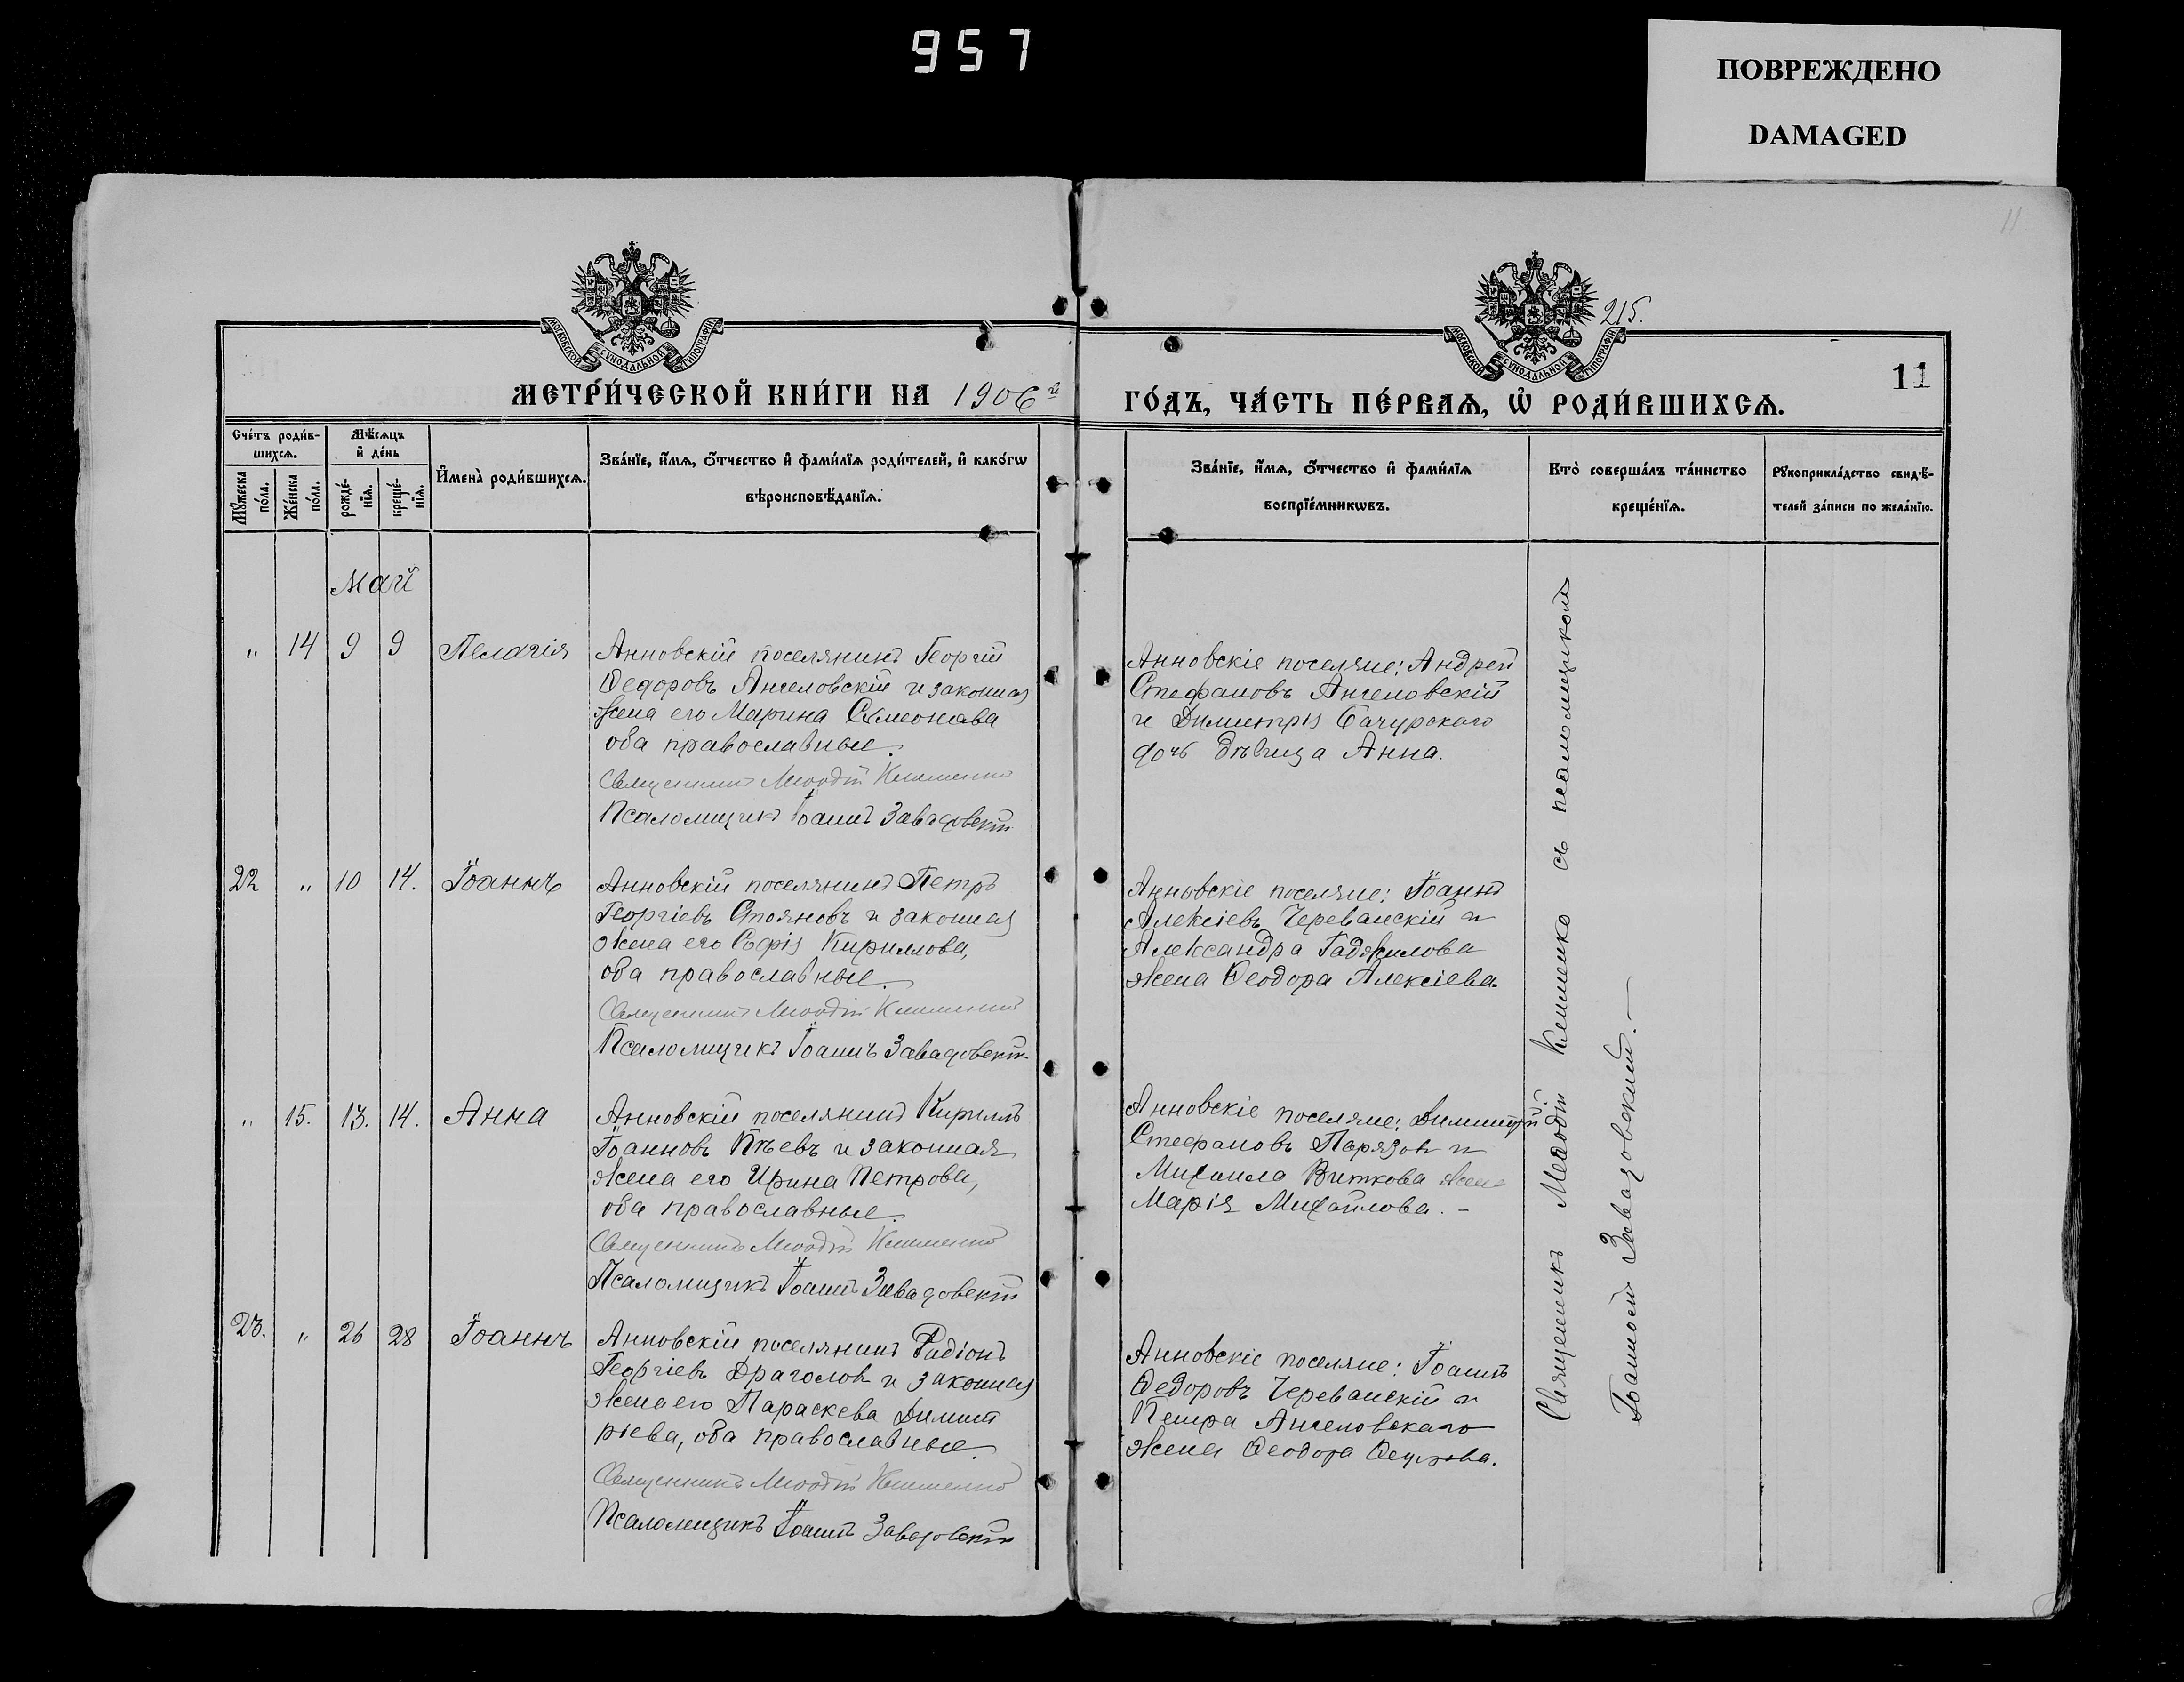 957
ПОВРЕЖДЕНО
DAMAGED
11
215.
11
МОСКОВСКОЙ СѴНОДАЛЬНОЙ ТИПОГРАФІИ
МОСКОВСКОЙ СѴНОДАЛЬНОЙ ТИПОГРАФІИ
МЕТРИ́ЧЕСКОЙ КНИ́ГИ НА 1906й
ГО́ДЪ, ЧА́СТЬ ПЕ́РВАѦ, Ѡ҆ РОДИ́ВШИХСѦ.
Сче́тъ роди́в-
шихсѧ.
Мѣ́сѧцъ
и҆ де́нь
Мꙋ́жеска по́ла.
Же́нска по́ла.
рожде́-нїѧ.
креще́-нїѧ.
И҆мена̀ роди́вшихсѧ.
Зва́нїе, и҆́мѧ, ѻ҆́тчество и҆ фами́лїѧ роди́телей, и҆ како́гѡ
вѣроисповѣ́данїѧ.
Зва́нїе, и҆́мѧ, ѻ҆́тчество и҆ фами́лїѧ
воспрїе́мникѡвъ.
Кто̀ соверша́лъ та́инство
креще́нїѧ.
Рꙋкоприкла́дство свидѣ́-
телей за́писи по жела́нїю.
Май
" 14 9 9 Пелагія
Анновскій поселянинъ Георгій
Ѳедоровъ Ангеловскій и законная
жена его Марина Сѵмеонова
оба православные.
Священникъ Меѳодій Клименко
Псаломщикъ Іоаннъ Завадовскій
Анновскіе поселяне: Андрей
Стефановъ Ангеловскій
и Димитрія Бачурского
дочь дѣвица Анна.
22 " 10 14. Іоаннъ
Анновскій поселянинъ Петръ
Георгіевъ Стояновъ и законная
жена его Софія Кириллова,
оба православные.
Священникъ Меѳодій Клименко
Псаломщикъ Іоаннъ Завадовскій
Анновскіе поселяне: Іоаннъ
Алексіевъ Череванскій и
Александра Гаджилова
жена Ѳеодора Алексіева.
" 15. 13. 14. Анна
Анновскій поселянинъ Кириллъ
Іоанновъ и законная
жена его Ирина Петрова,
оба православные.
Священникъ Меѳодій Клименко
Псаломщикъ Іоаннъ Завадовскій
Анновскіе поселяне: Димитрій
Стефановъ и
Михаила Виткова жена
Марія Михайлова. -
23. " 26 28 Іоаннъ
Анновскій поселянинъ Радіонъ
Георгіевъ Драголов и законная
жена его Параскева Димит
ріева, оба православные.
Священникъ Меѳодій Клименко
Псаломщикъ Іоаннъ Завадовскій
Анновскіе поселяне: Іоаннъ
Ѳедоровъ Череванскій и
Петра Ангеловскаго
жена Ѳеодора
Священникъ Меѳодій Клименко съ псаломщикомъ
Іоанномъ Завадовскимъ. —